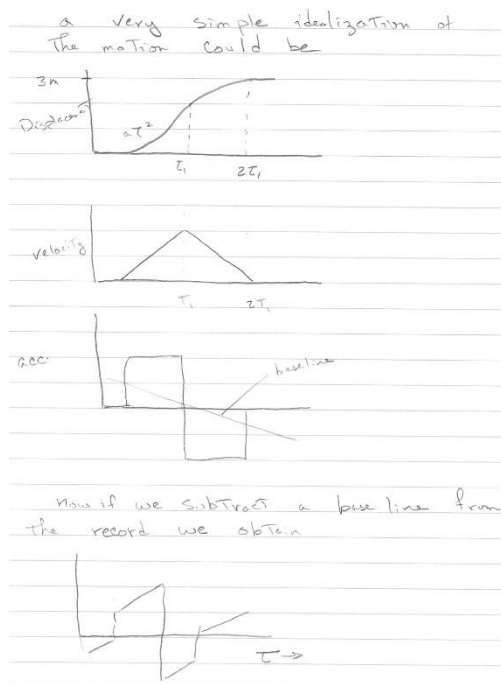 a very simple idealization of
the motion could be
3m
Displacement
aτ²
τ₁ 2τ₁
velocity
τ₁ 2τ₁
acc.
baseline
now if we subtract a base line from
the record we obtain
τ →